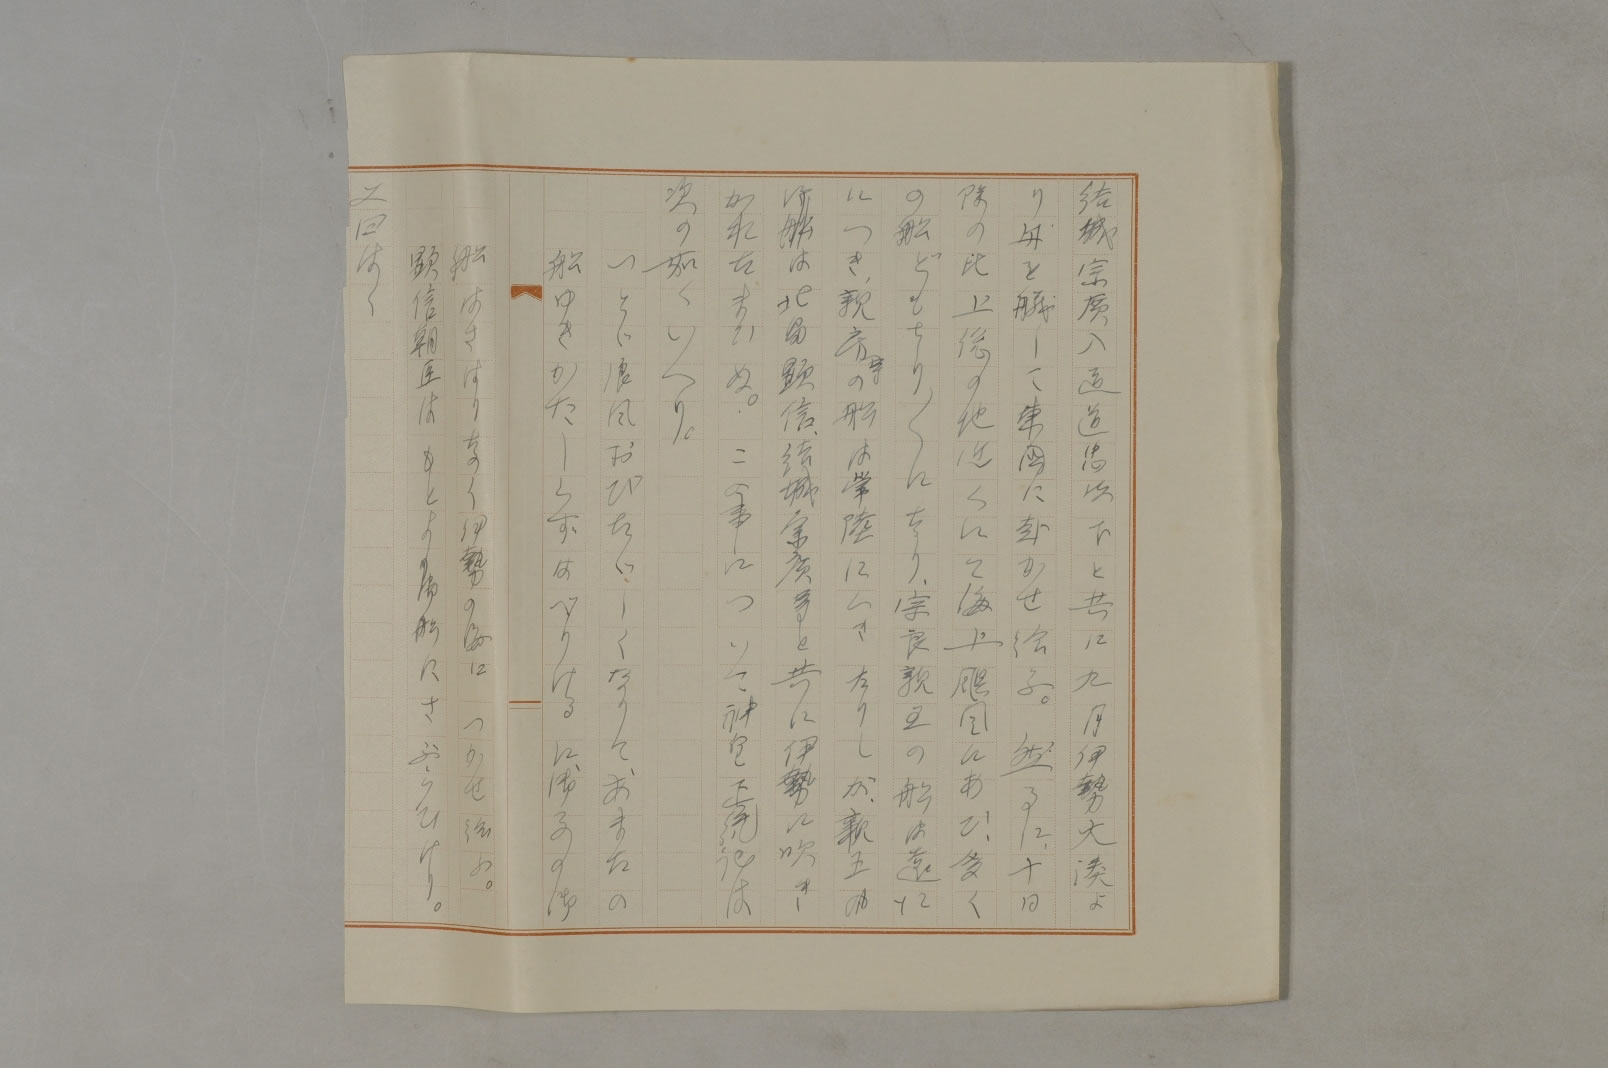 結城宗廣入道道忠以下と共に九月伊勢大湊よ
り舟を艤して東國に赴かせ給ふ。然るに、十日
餘の比上総の地近くにて海上颶風にあひ、多く
の船どもちり〲になり、宗良親王の船は遠江
につき、親房等の船は常陸につきたりしが、親王の
御船は北畠顕信、結城宗廣等と共に伊勢に吹き
かれたまひぬ。この事について神皇正統記は
次の如くいへり。
いとゞ浪風おびたゞしくなりて、あまたの
船ゆきかたしらずはべりけるに、御子の御
船はさはりなく伊勢の海につかせ給ふ。
顕信朝臣はもとより御船にさぶらひけり。
又曰はく